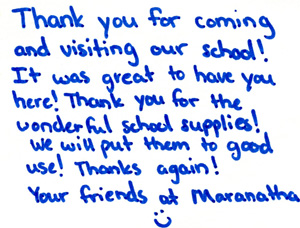 Thank you for coming
and visiting our school!
It was great to have you
here! Thank you for the
wonderful school supplies!
We will put them to good
use! Thanks again!
Your friends at Maranatha